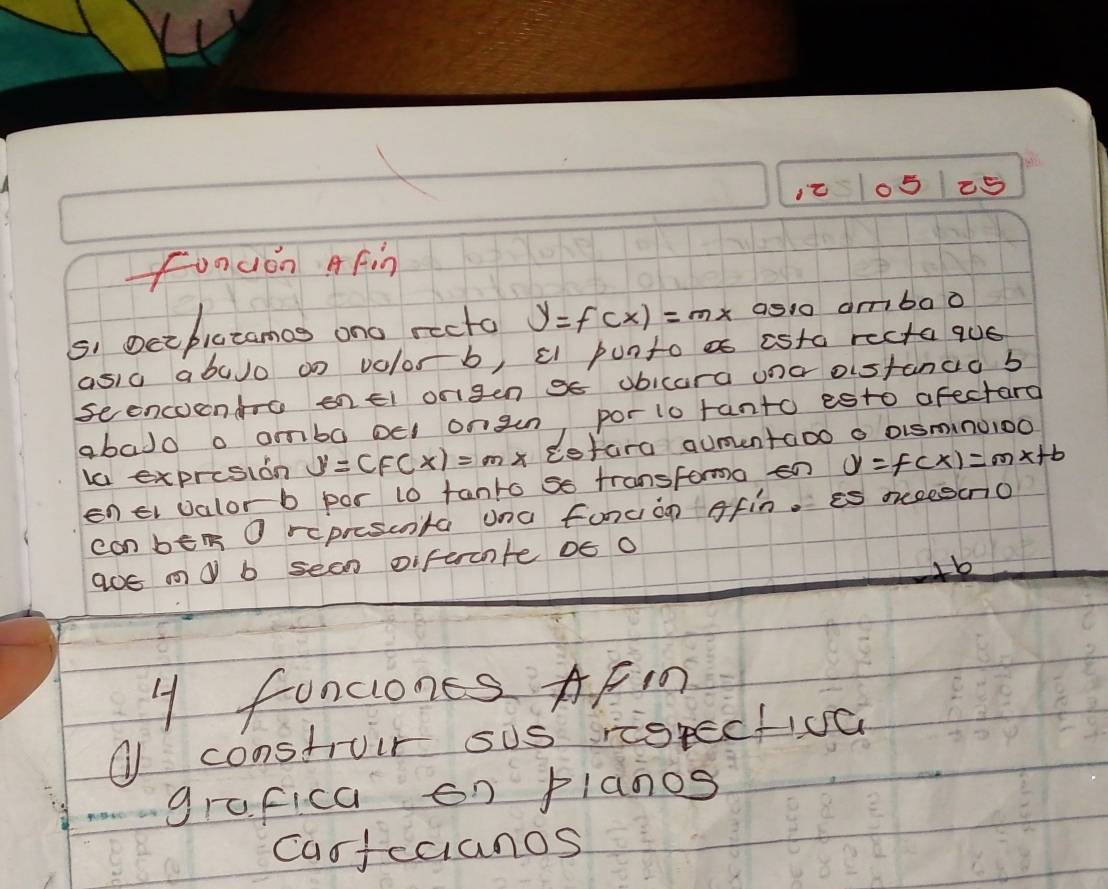 12 | 05 | 25
Función Afin
si Dezplazamos una recta y=f(x)=mx asia arriba o
asia abajo un valor b, El punto de esta recta que
se encuentra en El origen se ubicara una distancia b
abajo o arriba del origen, por lo tanto esto afectara
la expresión y=(f(x)=mx Estara aumentado o disminuido
en El valor b por lo tanto se transforma en y=f(x)=mx+b
con b representa una función Afín. Es necesario
que m y b sean diferente de 0
+b
4 funciones Afin
construir sus respectiva
grafica en planos
cartecianos